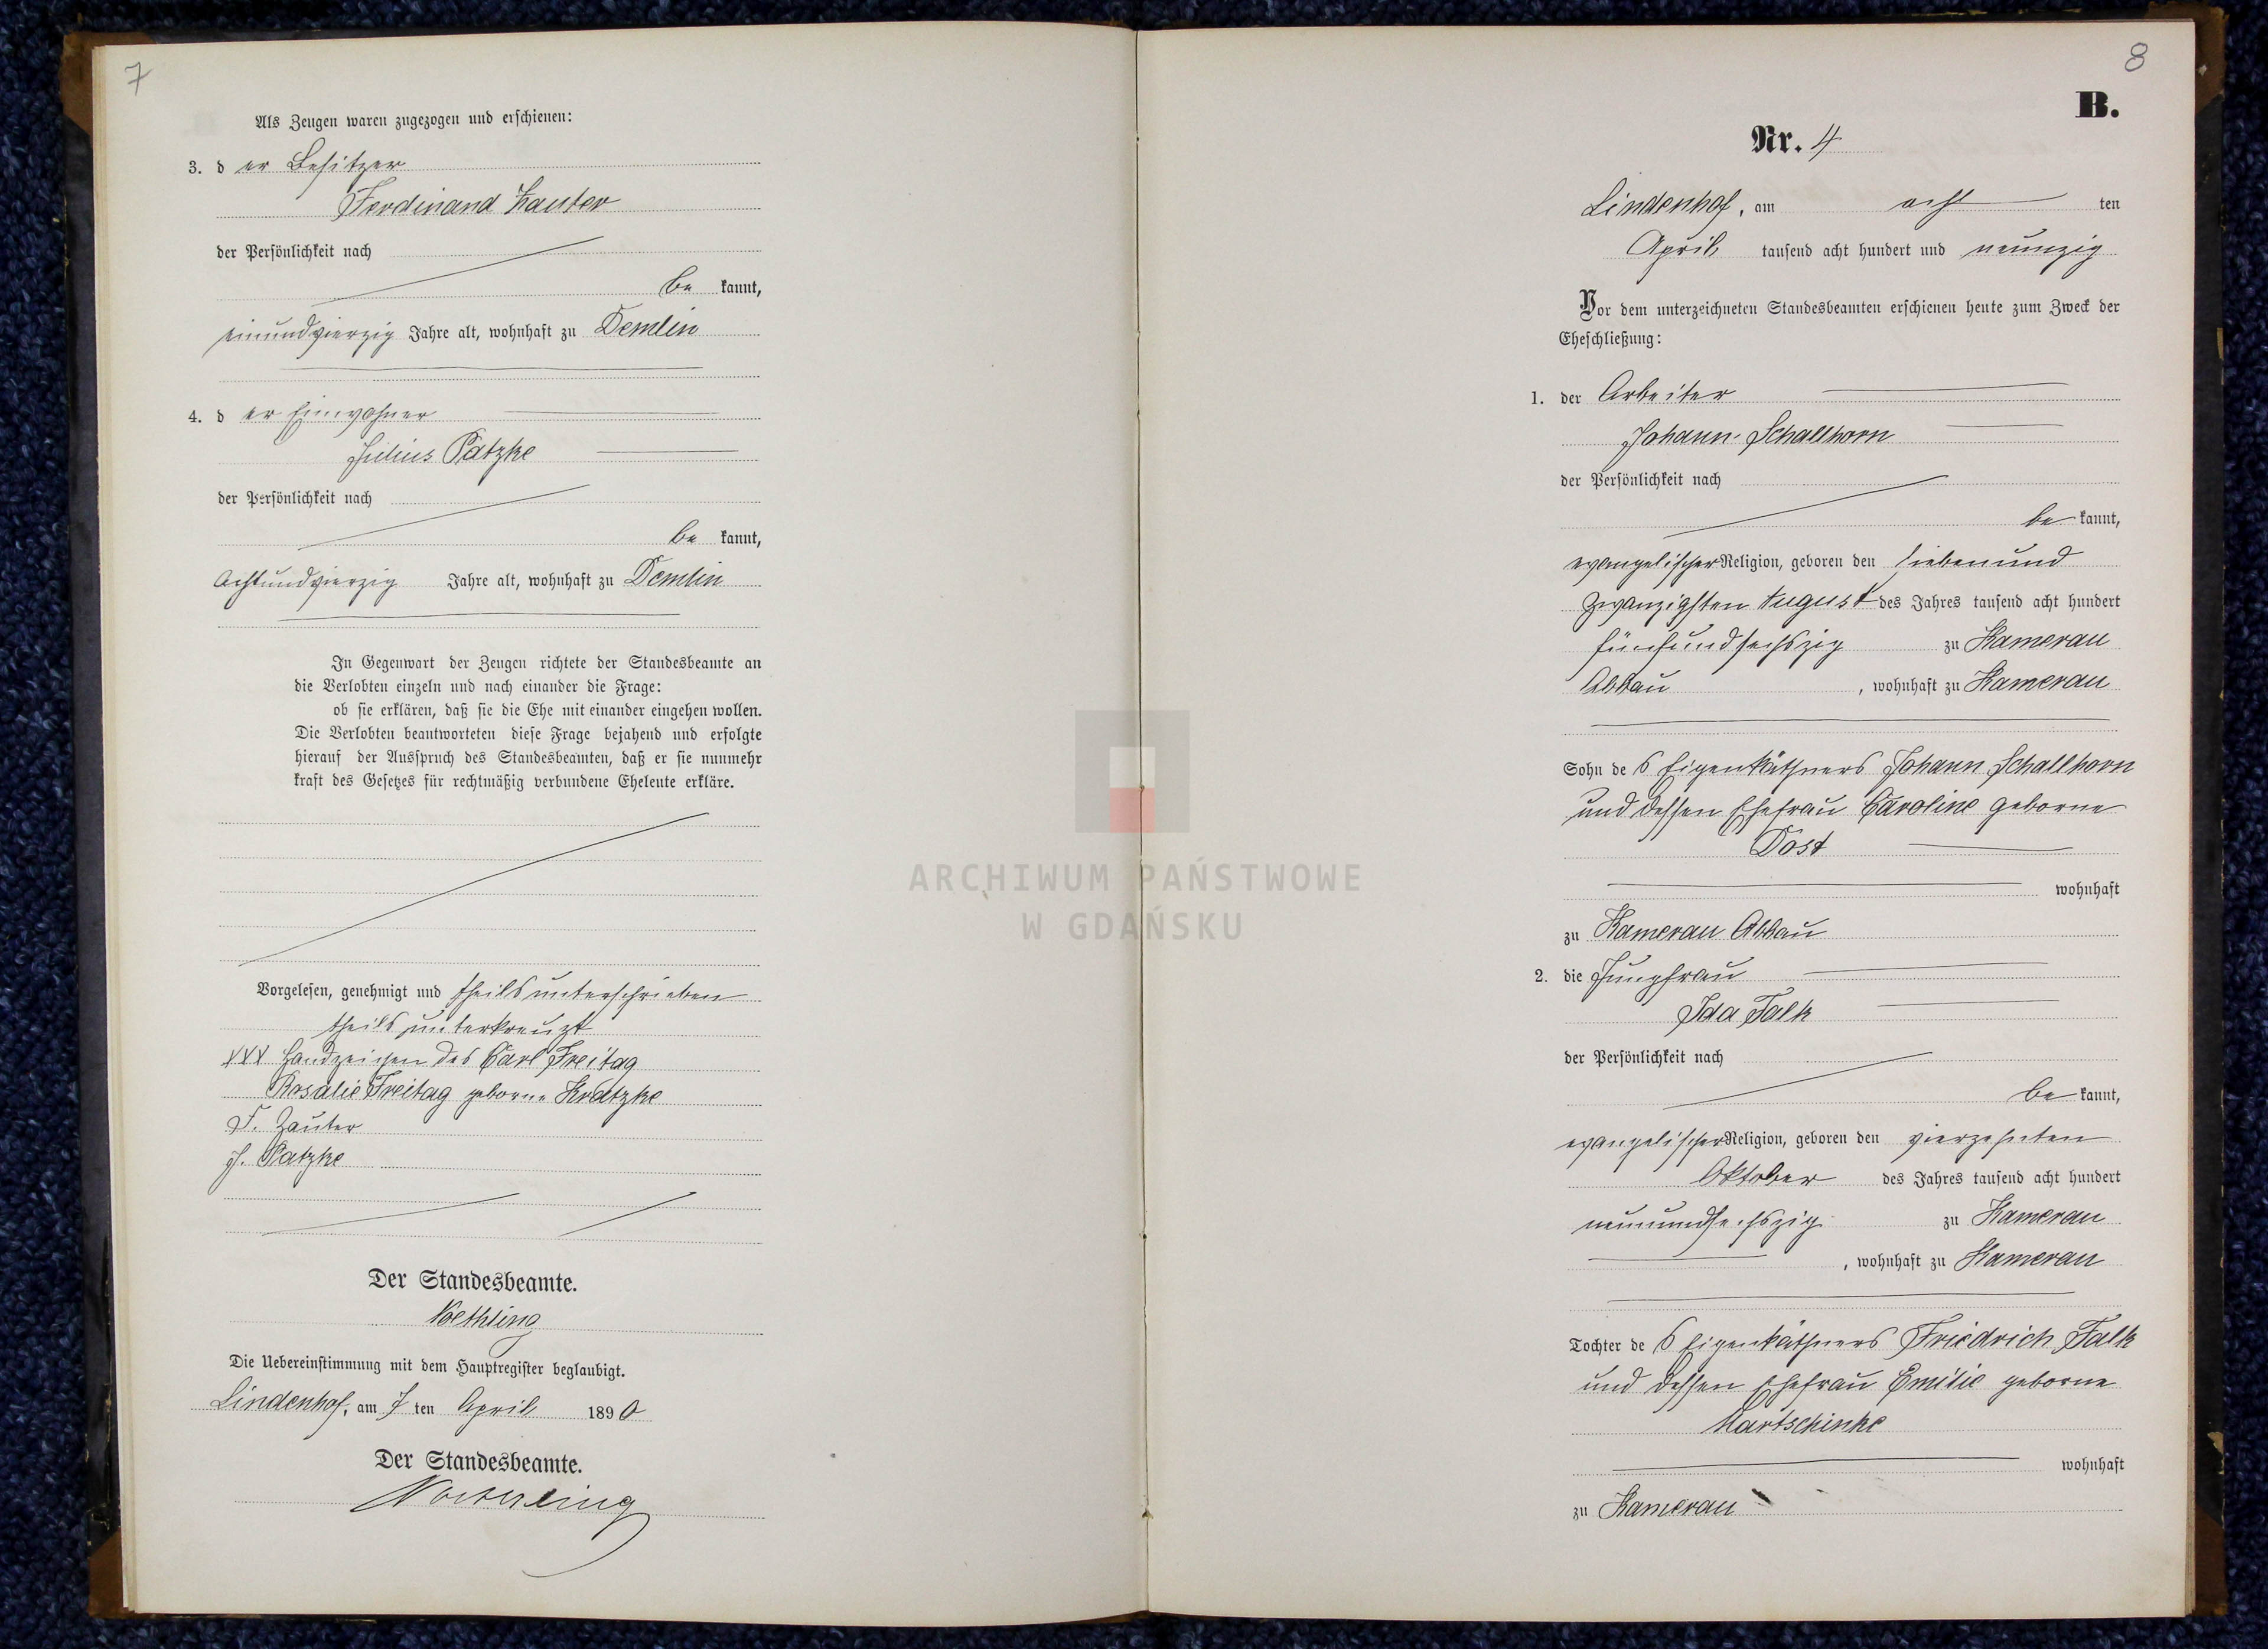 7
Als Zeugen waren zugezogen und erschienen:
3. d er Besitzer
Ferdinand Zauter
der Persönlichkeit nach
be kannt,
einundvierzig Jahre alt, wohnhaft zu Demlin
4. d er Einwohner
Julius Patzke
der Persönlichkeit nach
be kannt,
Achtundvierzig Jahre alt, wohnhaft zu Demlin
In Gegenwart der Zeugen richtete der Standesbeamte an
die Verlobten einzeln und nach einander die Frage:
ob sie erklären, daß sie die Ehe mit einander eingehen wollen.
Die Verlobten beantworteten diese Frage bejahend und erfolgte
hierauf der Ausspruch des Standesbeamten, daß er sie nunmehr
kraft des Gesetzes für rechtmäßig verbundene Eheleute erkläre.
Vorgelesen, genehmigt und theils unterschrieben
theils unterkreuzt
XXX Handzeichen des Carl Freitag
Rosalie Freitag geborne Kratzke
F. Zauter
J. Patzke
Der Standesbeamte.
Die Uebereinstimmung mit dem Hauptregister beglaubigt.
Lindenhof, am 7 ten April 1890
Der Standesbeamte.
8
B.
Nr. 4
Lindenhof, am acht ten
April tausend acht hundert und neunzig
Vor dem unterzeichneten Standesbeamten erschienen heute zum Zweck der
Eheschließung:
1. der Arbeiter
Johann Schallhorn
der Persönlichkeit nach
be kannt,
evangelischer Religion, geboren den siebenund
zwanzigsten August des Jahres tausend acht hundert
fünfundsechszig zu Kamerau
Abbau, wohnhaft zu Kamerau
Sohn des Eigenkäthners Johann Schallhorn
und dessen Ehefrau Caroline geborne
Dost
wohnhaft
zu Kamerau Abbau
2. die Jungfrau
Ida Falk
der Persönlichkeit nach
be kannt,
evangelischer Religion, geboren den vierzehnten
Oktober des Jahres tausend acht hundert
neunundsechszig zu Kamerau
, wohnhaft zu Kamerau
Tochter des Eigenkäthners Friedrich Falk
und dessen Ehefrau Emilie geborne
Martschinke
wohnhaft
zu Kamerau
ARCHIWUM PAŃSTWOWE
W GDAŃSKU